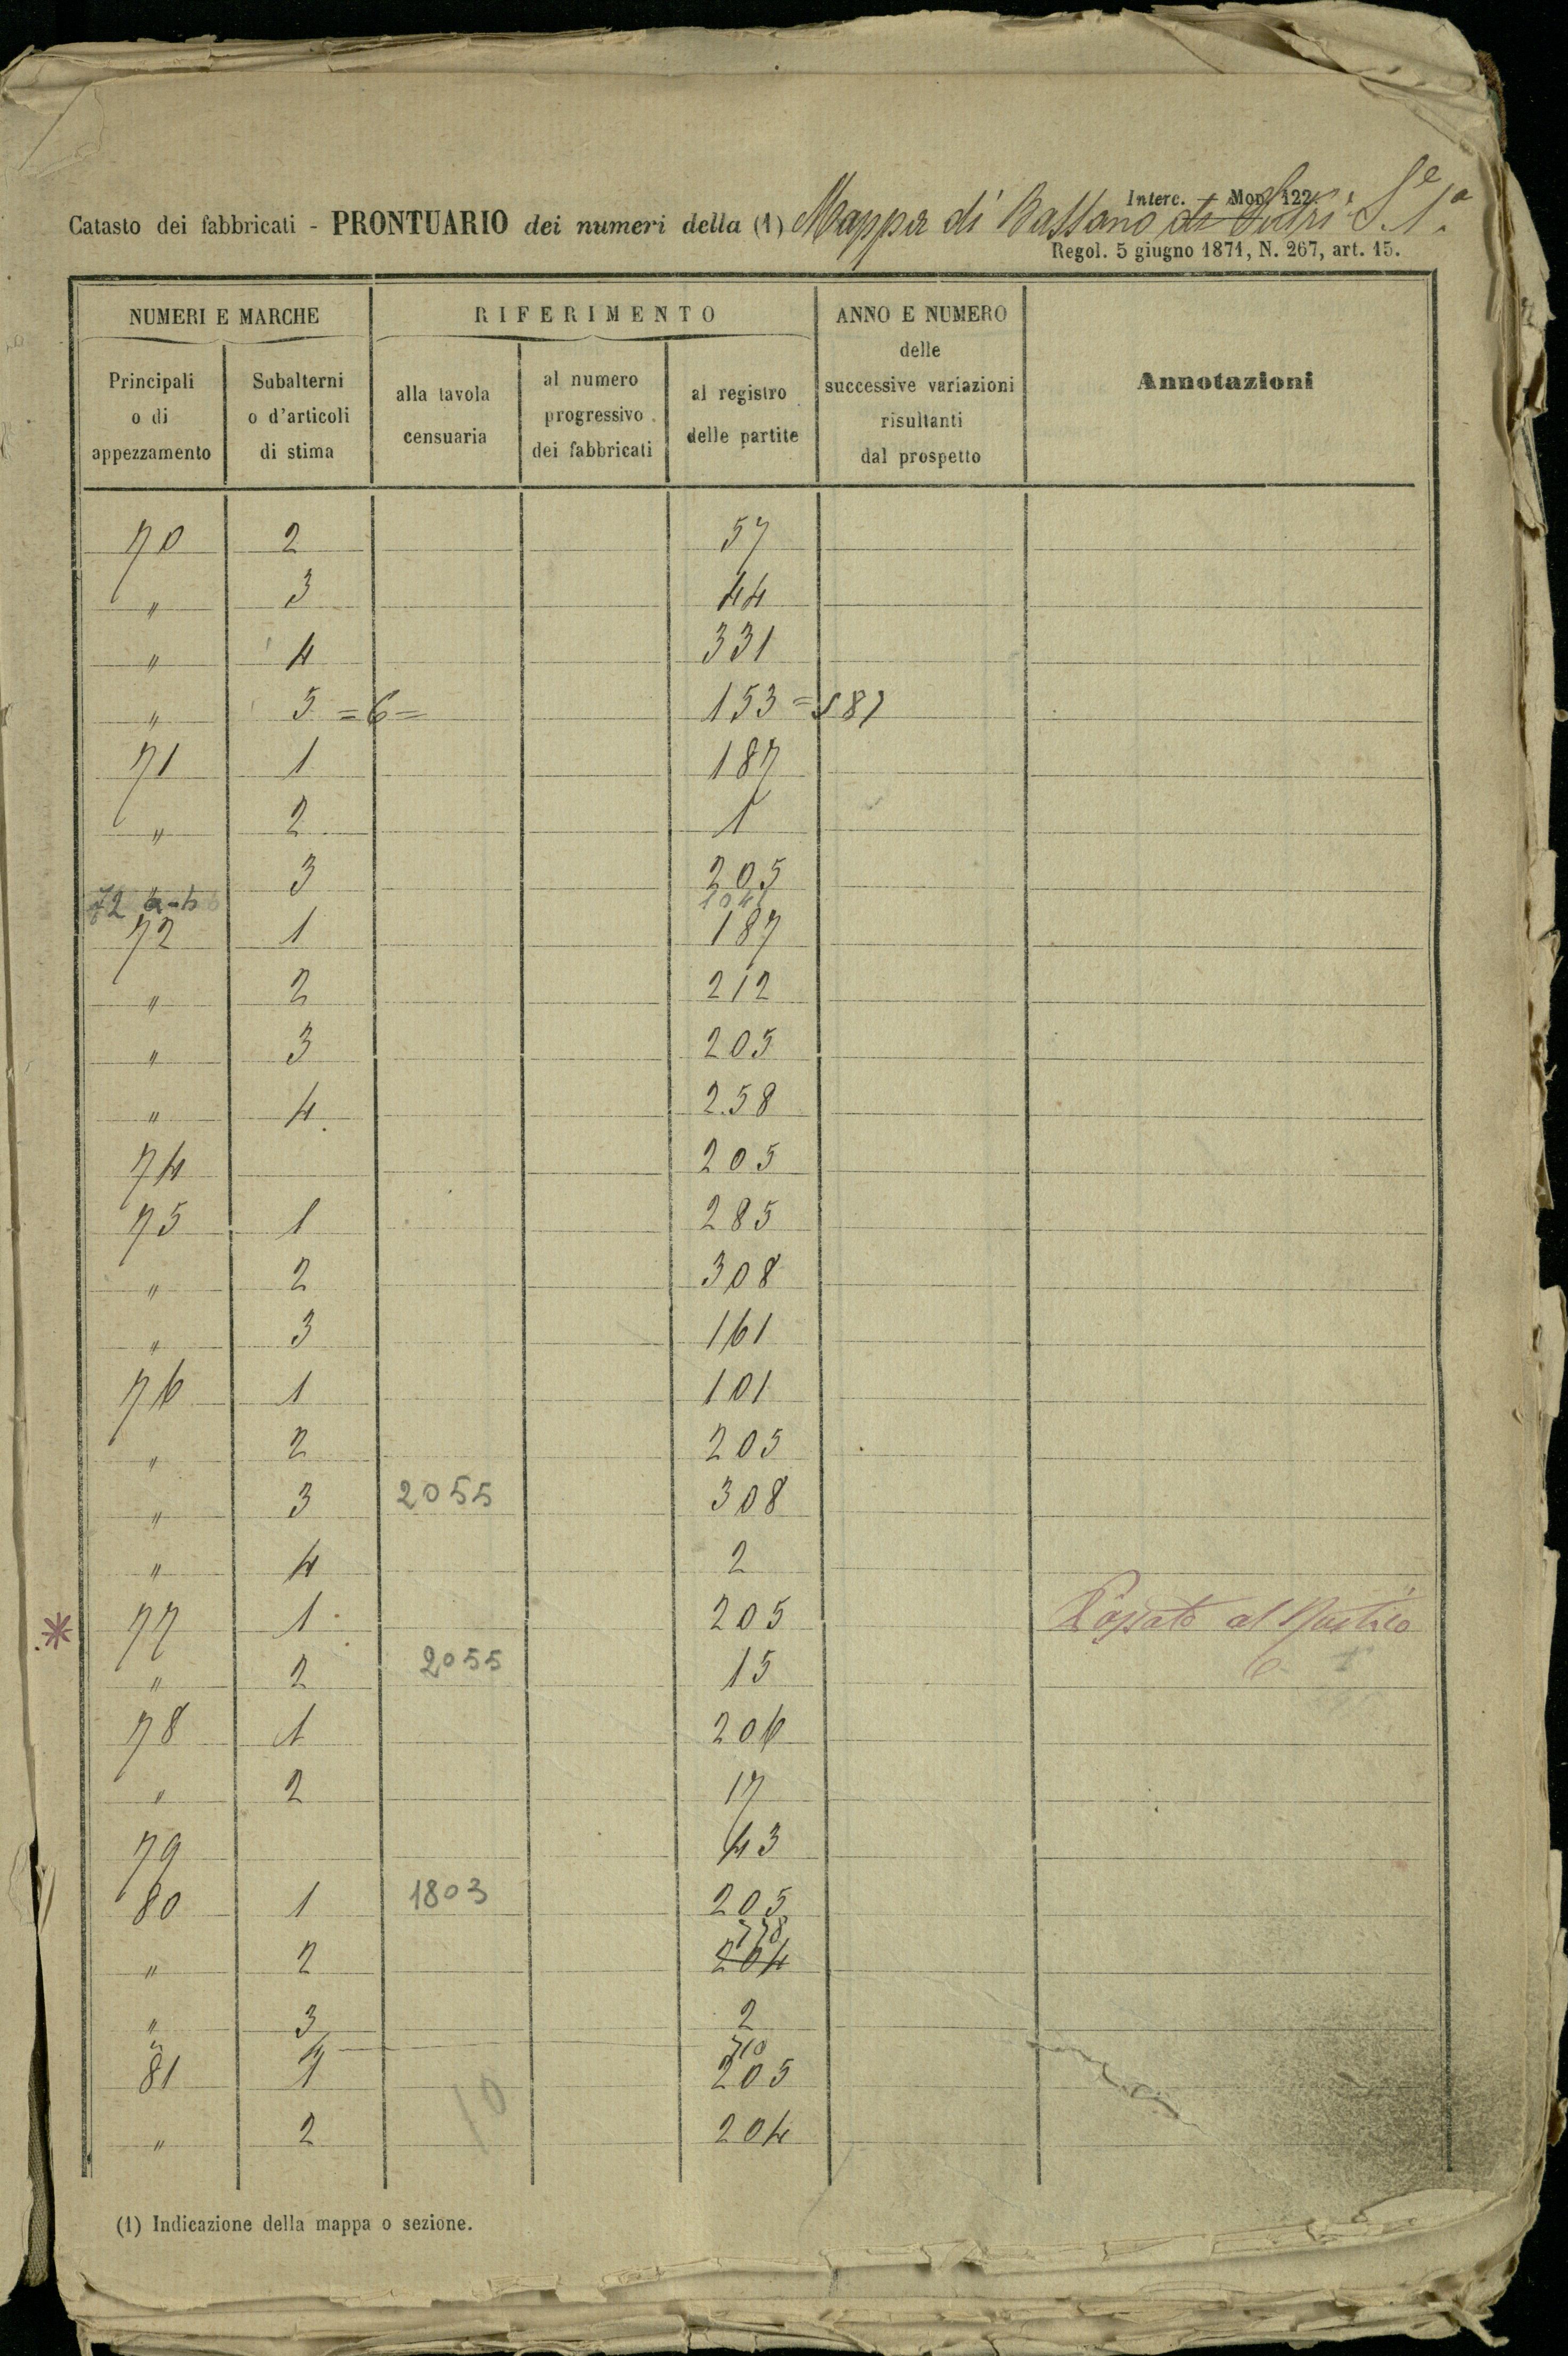 Interc. Mod. 122.
Catasto dei fabbricati - PRONTUARIO dei numeri della (1) Mappa di Bassano di Sutri S.e 1a
Regol. 5 giugno 1871, N. 267, art. 15.
NUMERI E MARCHE
Principali o di appezzamento
Subalterni o d'articoli di stima
RIFERIMENTO
alla tavola censuaria
al numero progressivo dei fabbricati
al registro delle partite
ANNO E NUMERO delle successive variazioni risultanti dal prospetto
Annotazioni
70 2 57
" 3 44
" 4 331
" 5 = 6 = 153 = 187
71 1 187
" 2 1
3 205
72 a-b
72 1 187
" 2 212
" 3 205
" 4 258
74 205
75 1 285
" 2 308
" 3 161
76 1 101
" 2 205
" 3 2055 308
" 4 2
77 1 205
" 2 2055 15
78 1 206
" 2 17
79 43
80 1 1803 205
778
" 2 204
" 3 2
" 4 710
81 1 205
" 2 204
10
(1) Indicazione della mappa o sezione.